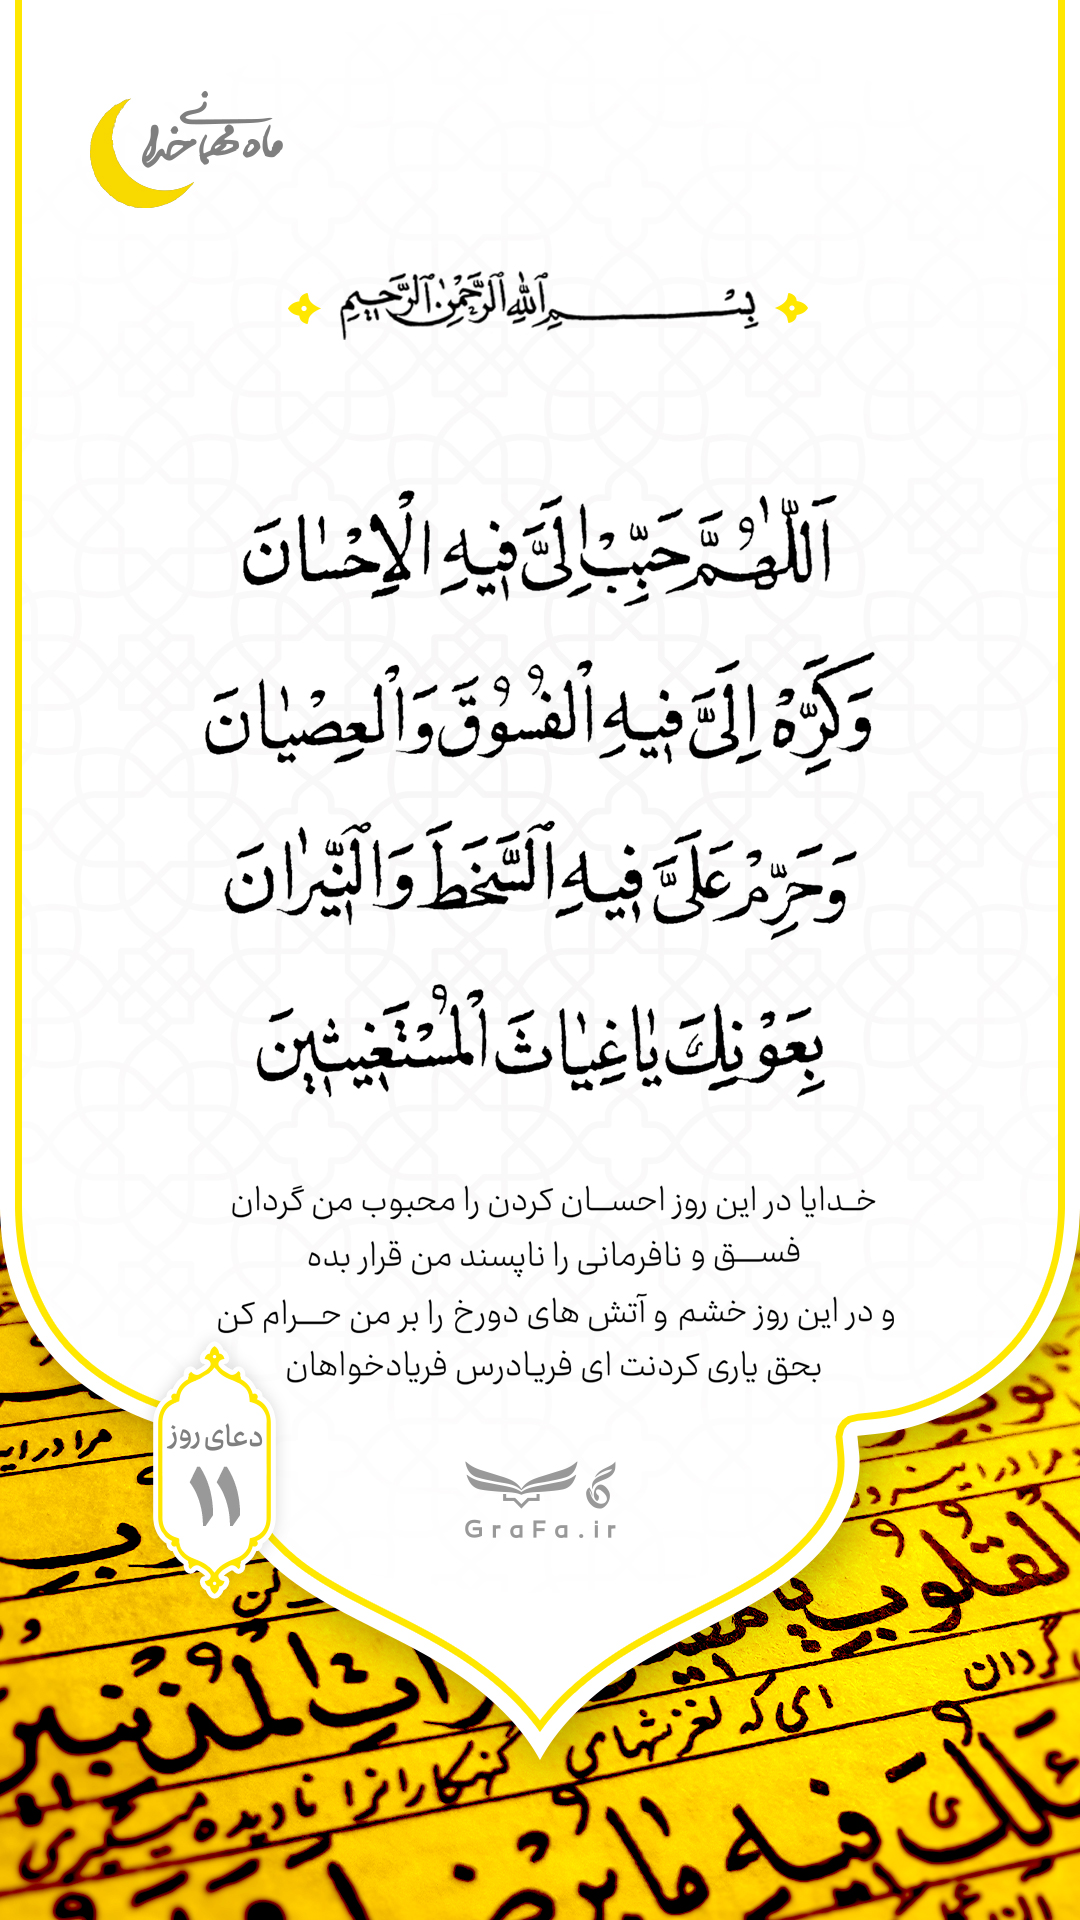 ماه مهمانی خدا
بِسْمِ ٱللّٰهِ ٱلرَّحْمٰنِ ٱلرَّحِيمِ
اَللّٰهُمَّ حَبِّبْ اِلَيَّ فيهِ الْاِحْسٰانَ
وَكَرِّهْ اِلَيَّ فيهِ الْفُسُوقَ وَالْعِصْيٰانَ
وَحَرِّمْ عَلَيَّ فيهِ السَّخَطَ وَالنّيرٰانَ
بِعَوْنِكَ يٰا غِيٰاثَ الْمُسْتَغيثينَ
خدایا در این روز احسان کردن را محبوب من گردان
فسق و نافرمانی را ناپسند من قرار بده
و در این روز خشم و آتش های دورخ را بر من حرام کن
بحق یاری کردنت ای فریادرس فریادخواهان
دعای روز
۱۱
GraFa.ir
مرا در این
کن
القُلوبِ
گردان
المُذنبین
ای که لغزشهای گنهکارانرا نادیده میگیری
فیهِ ما